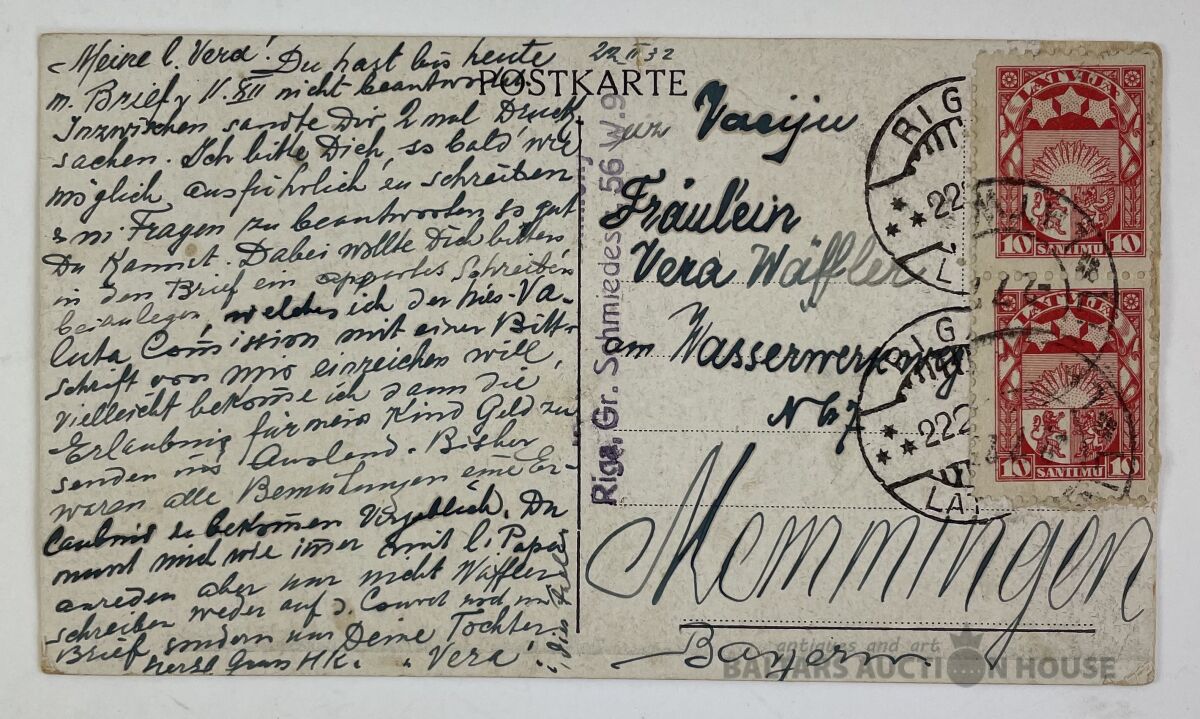 Meine l. Vera! Du hast bis heute
m. Brief v 11. XII nicht beantwortet.
Inzwischen sandte Dir 2 mal Druck
sachen. Ich bitte Dich, so bald wie
möglich ausführlich zu schreiben
m. Fragen zu beantworten so gut
Du kannst. Dabei wollte Dich bitten
in den Brief ein apartes Schreiben
beizulegen, welches ich der hies. Va-
luta Comission mit einer Bitt-
schrift von mir einreichen will,
vielleicht bekome ich dann die
Erlaubnis für mein Kind Geld zu
senden ins Ausland. Bisher
waren alle Bemühungen eine Er-
laubnis zu bekomen vergeblich. Du
mich wie imer mit l. Papa
anreden aber nur nicht Wäffler
schreiben weder auf d. Couvert noch im
Brief, sondern nur Deine Tochter
Herzl Gruss HK. "Vera"
22 II 32
POSTKARTE
Fräulein
Vera Wäffler
am Wasserwerkweg
Memmingen
Bayern
Riga, Gr. Schmiedestr. 56 W. 9
RIG
222
L
RIG
222
LAT
LATVIJA
10 SANTIMU 10
LATVIJA
10 SANTIMU 10
antiques and art
BALTARS AUCTION HOUSE